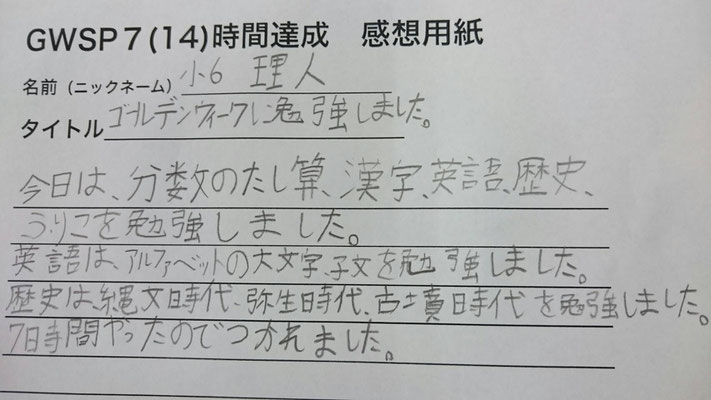 GWSP7(14)時間達成　感想用紙
名前（ニックネーム）小6 理人
タイトル ゴールデンウィークに勉強しました。
今日は、分数のたし算、漢字、英語、歴史、
うりこを勉強しました。
英語は、アルファベットの大文字、子文を勉強しました。
歴史は、縄文時代、弥生時代、古墳時代を勉強しました。
7時間やったのでつかれました。